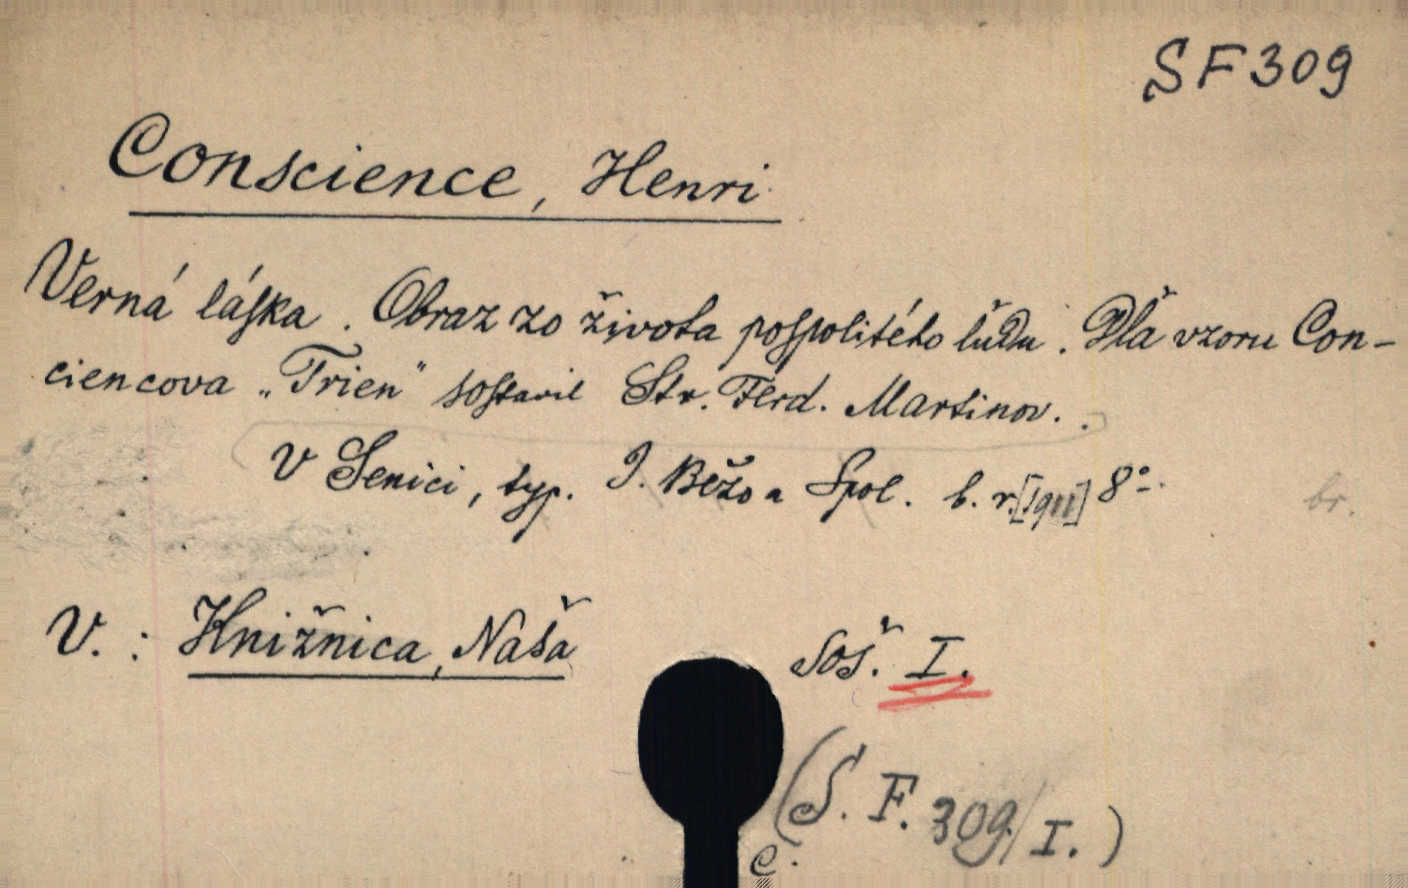 SF309
Conscience, Henri
Verná láska. Obraz zo života pospolitého ľudu. Dľa vzoru Con-
ciencova „Trien" sostavil Str. Ferd. Martinov.
V Senici, typ. J. Bežo a Spol. b. r. [1911] 8°.
br.
V.: Knižnica, Naša soš. I.
(S. F. 309/I.)
C.